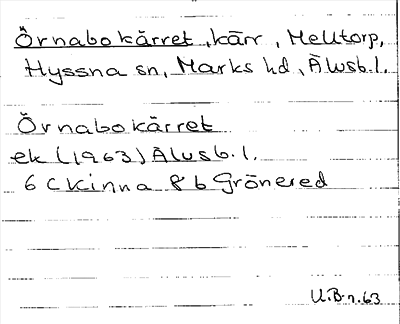 Örnabokärret, kärr, Melltorp,
Hyssna sn, Marks hd, Älvsb. l.
Örnabokärret
ek (1963) Älvsb. l.
6 C Kinna 8 b Grönered
U.B-n. 63